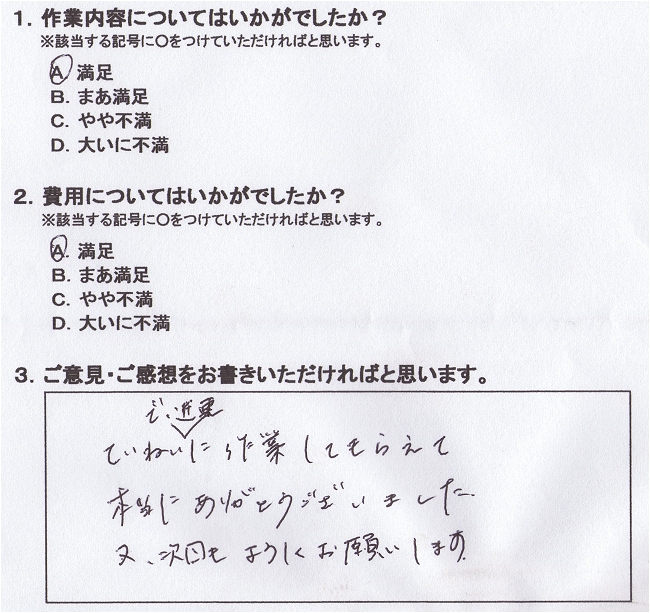 1. 作業内容についてはいかがでしたか？
※該当する記号に〇をつけていただければと思います。
A. 満足
B. まあ満足
C. やや不満
D. 大いに不満
2. 費用についてはいかがでしたか？
※該当する記号に〇をつけていただければと思います。
A. 満足
B. まあ満足
C. やや不満
D. 大いに不満
3. ご意見・ご感想をお書きいただければと思います。
で、迅速
ていねいに作業してもらえて
本当にありがとうございました。
又、次回もよろしくお願いします。